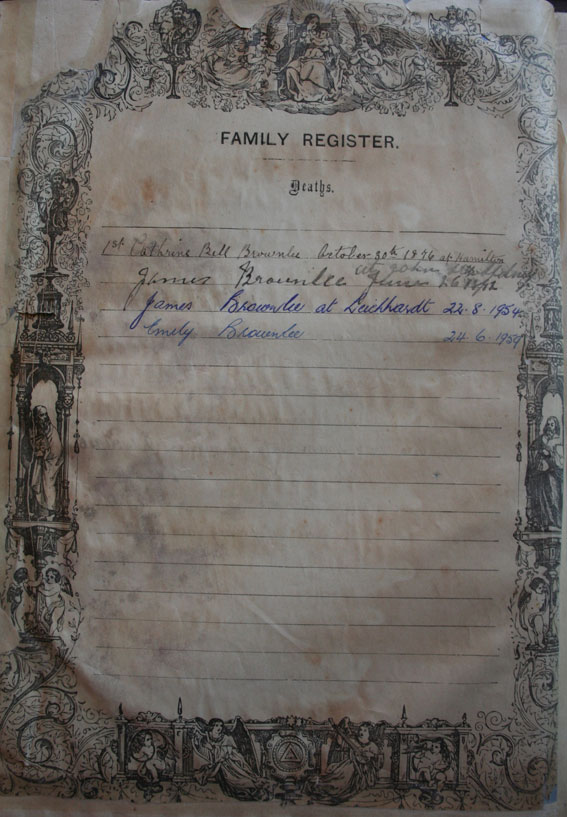 FAMILY REGISTER.
Deaths.
1st Cathrine Bell Brownlee October 30th 1896 at Hamilton
James Brownlee June
James Brownlee at Leichhardt 22.8.1954.
Emily Brownlee 24.6.1959